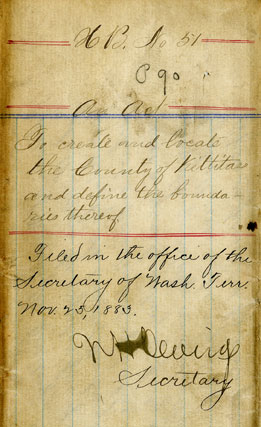 H B. No 51
P 90
An Act
To create and locate
the County of Kittitas
and define the bounda-
ries thereof
Filed in the office of the
Secretary of Wash. Terr.
Nov. 25, 1883.
Secretary